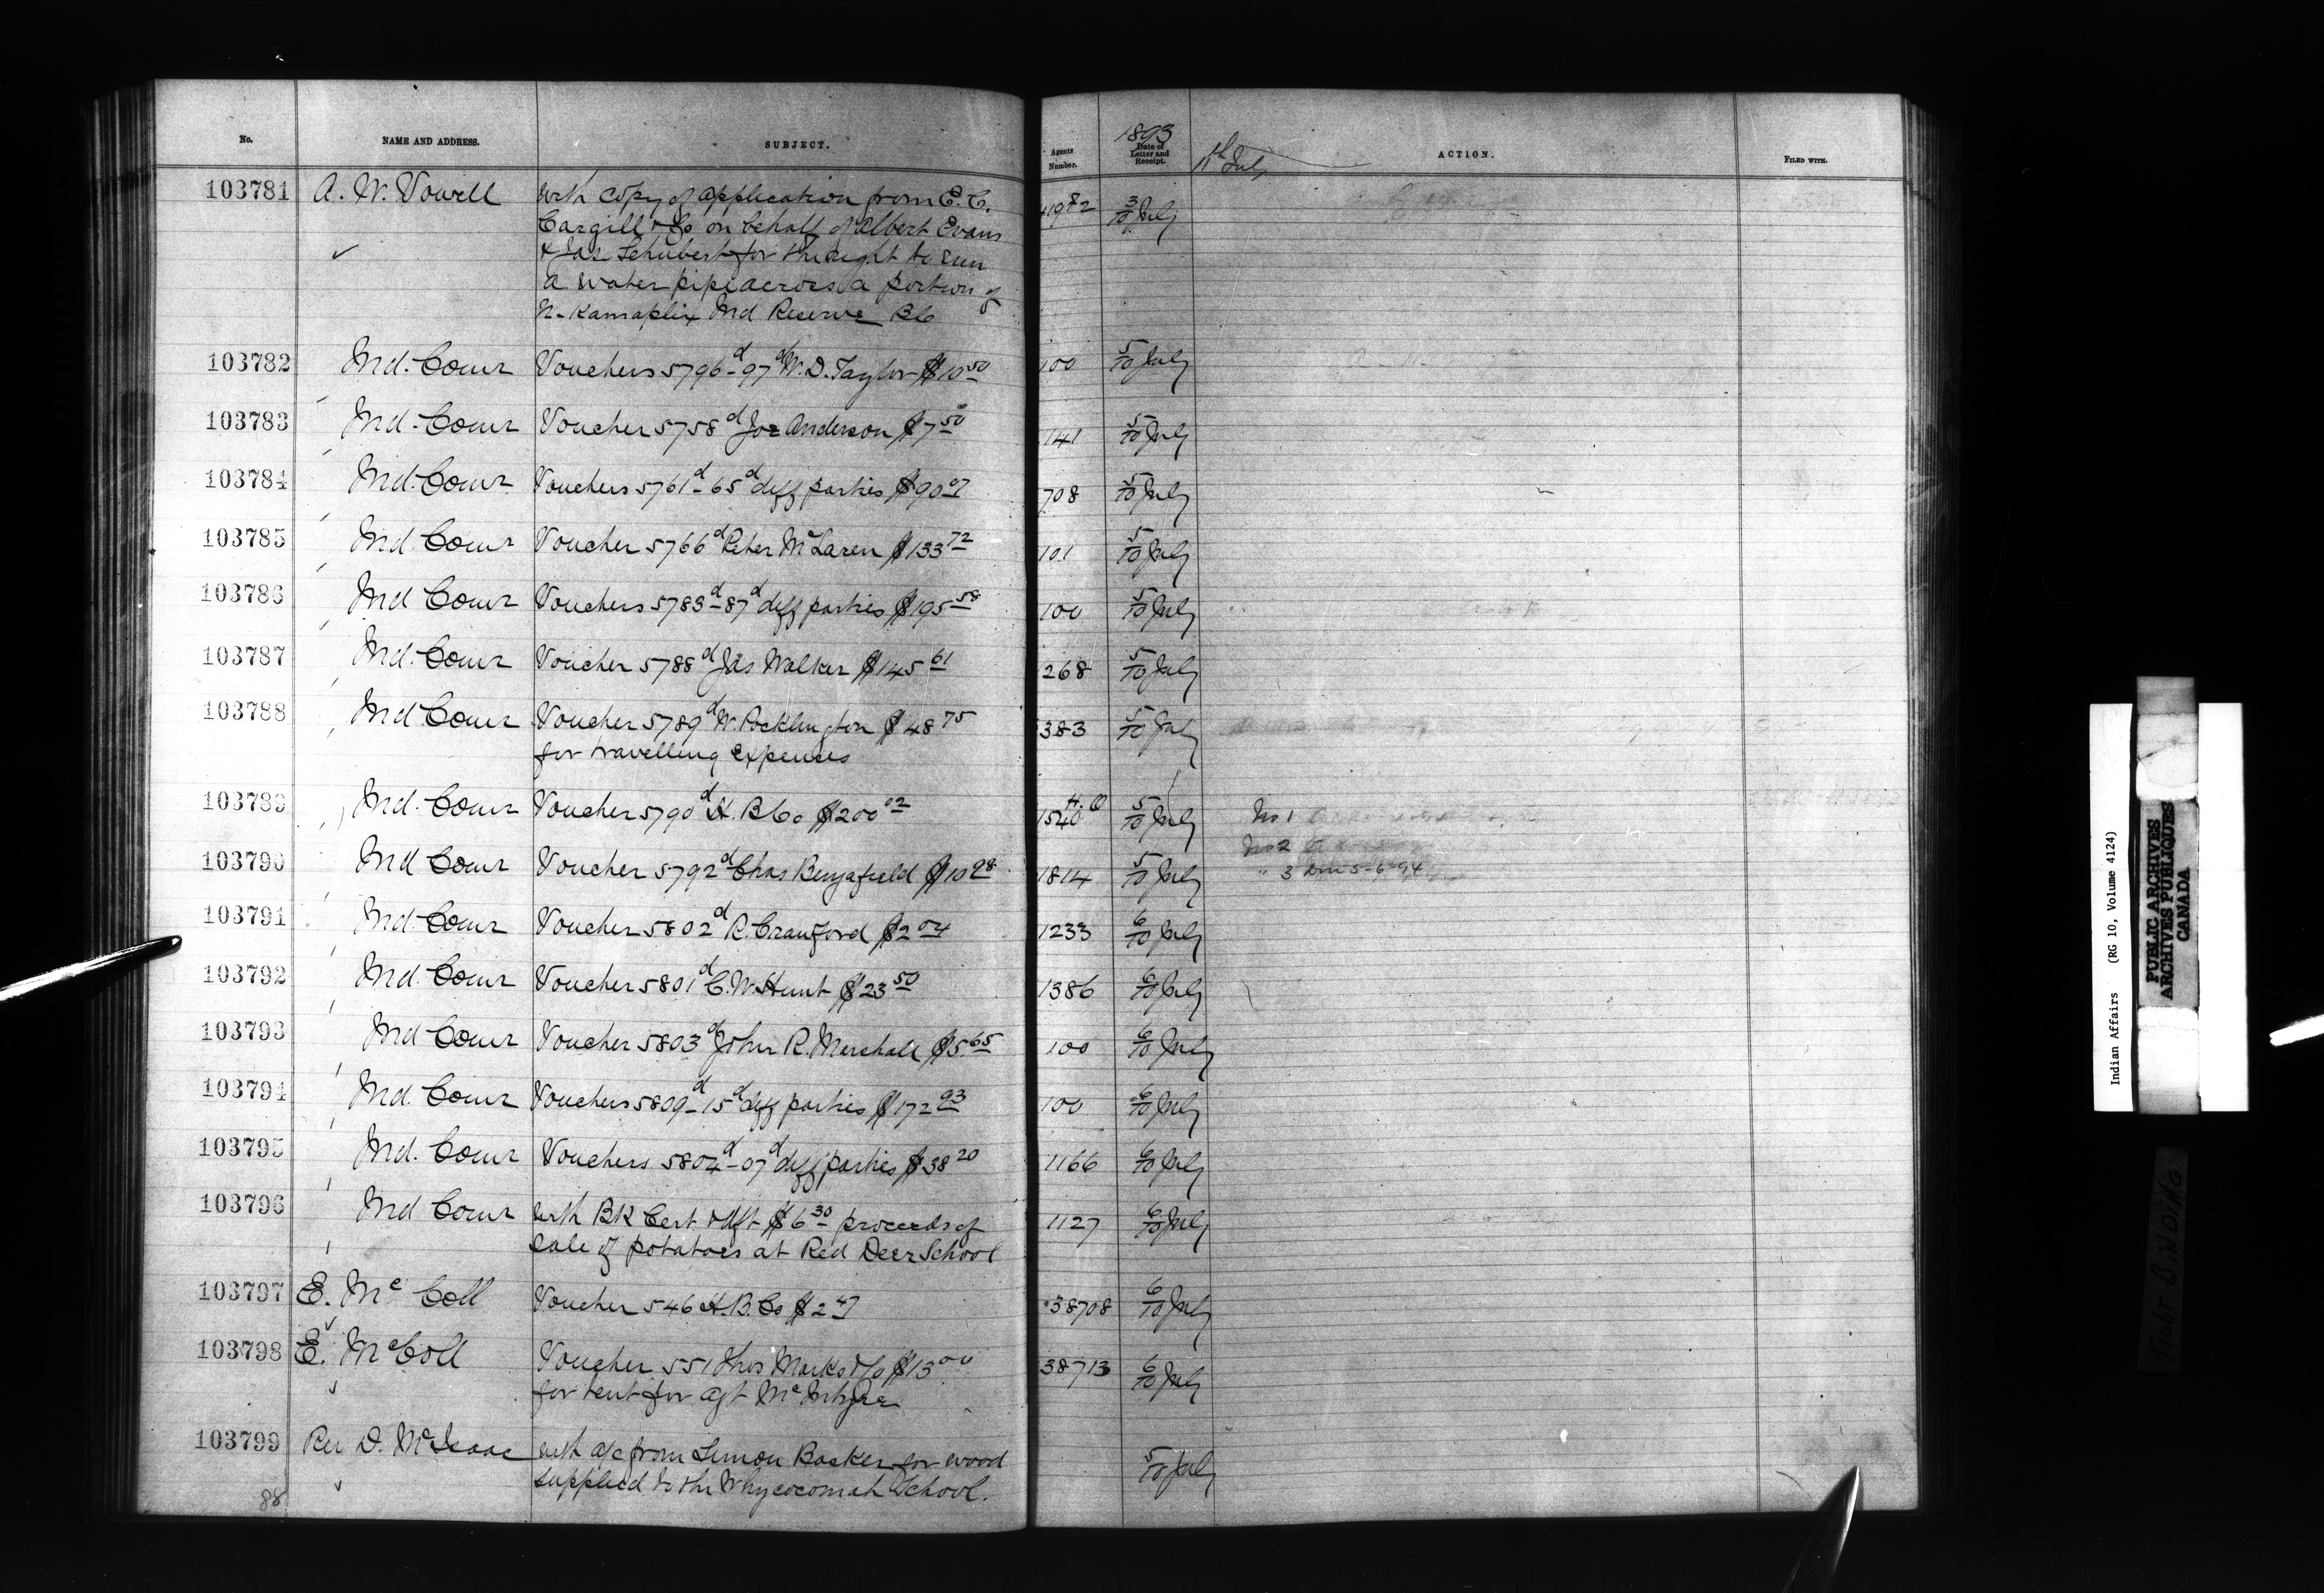 No. NAME AND ADDRESS. SUBJECT. Agents Number. 1893 Date of Letter and Receipt. 11th July ACTION. FILED WITH.
103781 A. W. Vowell with copy of application from E. C. 3/10 July
Cargill & Co on behalf of Albert Evans
& Jas Schubert for the right to run
a water pipe across a portion of
N. Ind Reserve BC
103782 Ind. Comr Vouchers 5796d-97d W. D. Taylor $10 50 100 5/10 July
103783 Ind. Comr Voucher 5758d Joe Anderson $7 50 141 5/10 July
103784 Ind. Comr Vouchers 5761d-65d diff parties $90 07 708 5/10 July
103785 Ind. Comr Voucher 5766d Peter McLaren $133 72 101 5/10 July
103786 Ind Comr Vouchers 5783d-87d diff parties $195 58 100 5/10 July
103787 Ind. Comr Voucher 5788d Jas Walker $145 61 268 5/10 July
103788 Ind Comr Voucher 5789d W. Pocklington $48 75 383 5/10 July
for travelling expenses
103789 Ind. Comr Voucher 5790d H. B Co $200 02 H.O 1540 5/10 July No 1
No 2
103790 Ind Comr Voucher 5792d Chas $10 28 1814 5/10 July " 3 5-6-94
103791 Ind Comr Voucher 5802d R. Crauford $2 04 1233 6/10 July
103792 Ind. Comr Voucher 5801d C. W. Hunt $23 50 1386 6/10 July
103793 Ind Comr Voucher 5803d John R. Marshall $5 65 100 6/10 July
103794 Ind. Comr Vouchers 5809d-15d diff parties $172 93 100 6/10 July
103795 Ind. Comr Vouchers 5804d-07d diff parties $38 20 1166 6/10 July
103796 Ind Comr with BK Cert & dft $6 30 proceeds of 1127 6/10 July
sale of potatoes at Red Deer School
103797 E. McColl Voucher 546 H. B. Co $2 47 38708 6/10 July
103798 E. McColl Voucher 551 Thos Marks & Co $13 00 38713 6/10 July
for rent for agt McIntyre
103799 Rev D. McIsaac with a/c from Simon Basker for wood 5/10 July
supplied to the Whycocomah School.
88
Indian Affairs (RG 10, Volume 4124)
PUBLIC ARCHIVES
ARCHIVES PUBLIQUES
CANADA
TIGHT BINDING